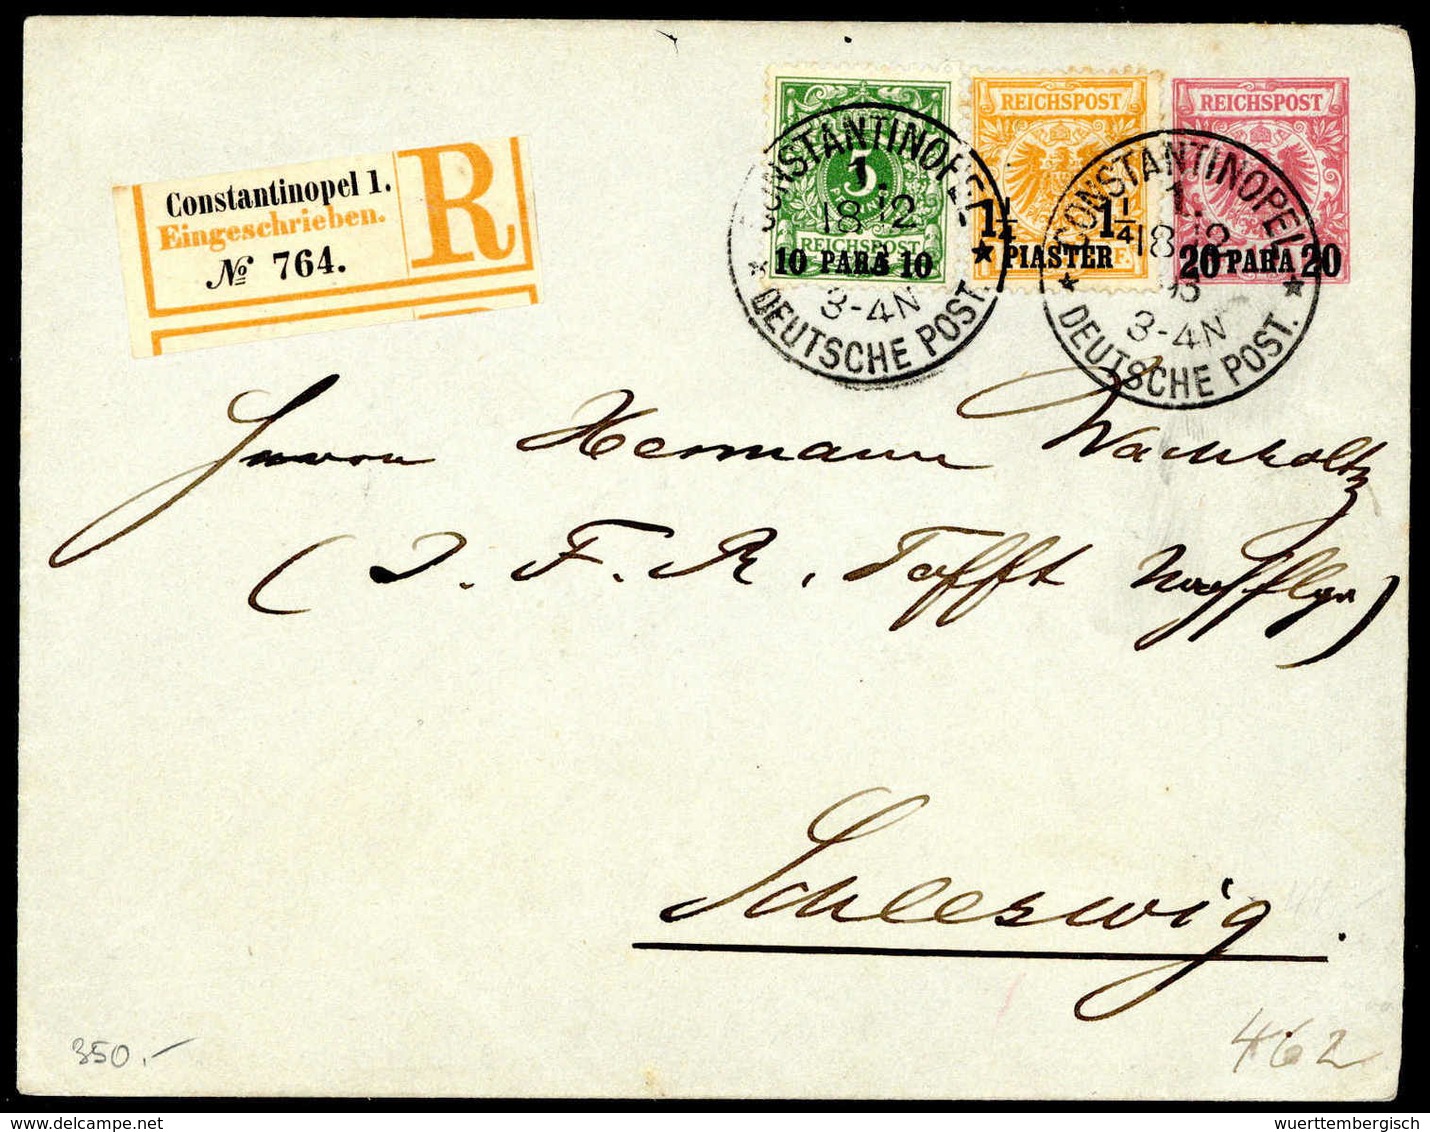 Constantinopel 1.
Eingeschrieben.
№ 764.
R
5
REICHSPOST
10 PARA 10
REICHSPOST
1¼ 1¼
PIASTER
REICHSPOST
20 PARA 20
CONSTANTINOPEL
1.
18 12
3-4N
* DEUTSCHE POST. *
CONSTANTINOPEL
1.
18 12
95
3-4N
* DEUTSCHE POST. *
Herrn Hermann Wachholtz
(J. F. R. Tofft
Schleswig.
350.-
462
wuerttembergisch